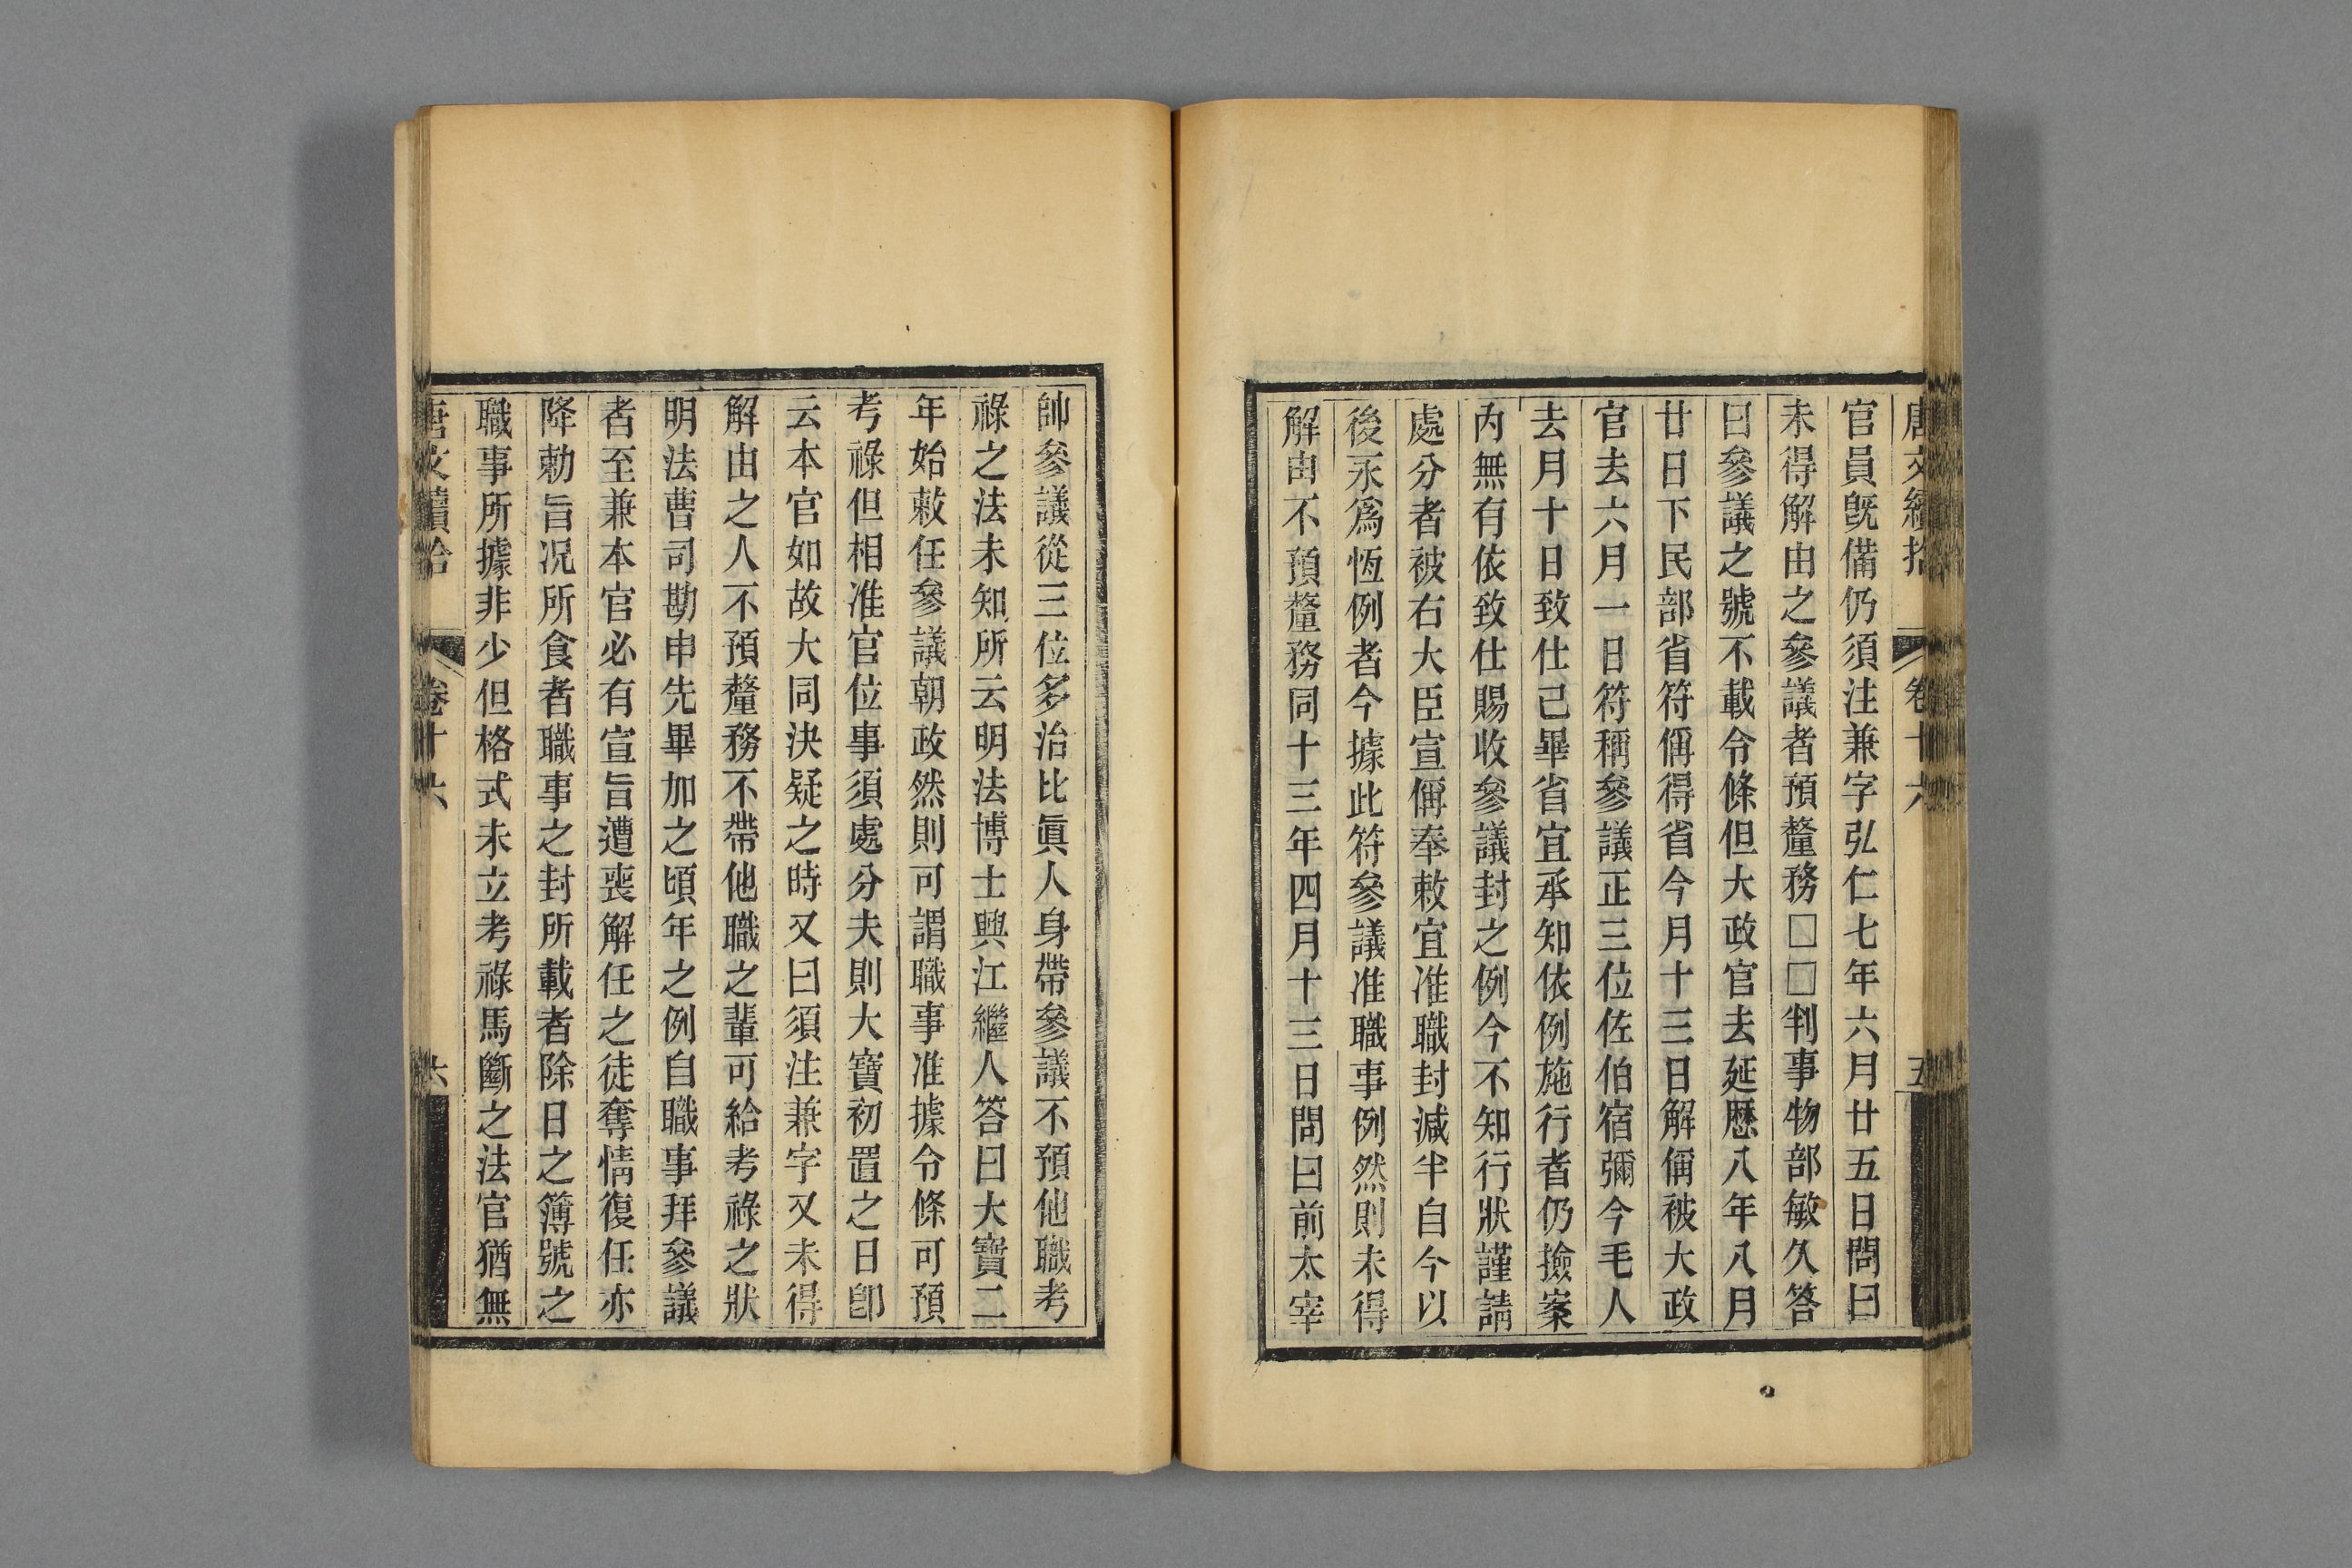 唐文續拾 卷十六 五
官員旣備仍須注兼字弘仁七年六月廿五日問曰
未得解由之參議者預釐務□□判事物部敏久答
曰參議之號不載令條但大政官去延歷八年八月
廿日下民部省符偁得省今月十三日解偁被大政
官去六月一日符稱參議正三位佐伯宿彌今毛人
去月十日致仕己畢省宜承知依例施行者仍撿案
內無有依致仕賜收參議封之例今不知行狀謹請
處分者被右大臣宣偁奉敕宜准職封減半自今以
後永爲恆例者今據此符參議准職事例然則未得
解由不預釐務同十三年四月十三日問曰前太宰
帥參議從三位多治比眞人身帶參議不預他職考
祿之法未知所云明法博士興江繼人答曰大寶二
年始敕任參議朝政然則可謂職事准據令條可預
考祿但相准官位事須處分夫則大寶初置之日卽
云本官如故大同決疑之時又曰須注兼字又未得
解由之人不預釐務不帶他職之輩可給考祿之狀
明法曹司勘申先畢加之頃年之例自職事拜參議
者至兼本官必有宣旨遭喪解任之徒奪情復任亦
降勅旨况所食者職事之封所載者除日之簿號之
職事所據非少但格式未立考祿馬斷之法官猶無
唐文續拾 卷十六 六